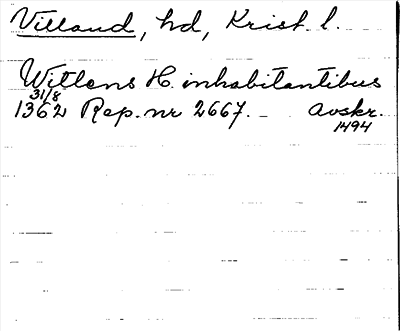 Villand, hd, Krist. l.
Witlens H. inhabitantibus
31/8
1362 Rep. nr 2667. - Avskr.
1494